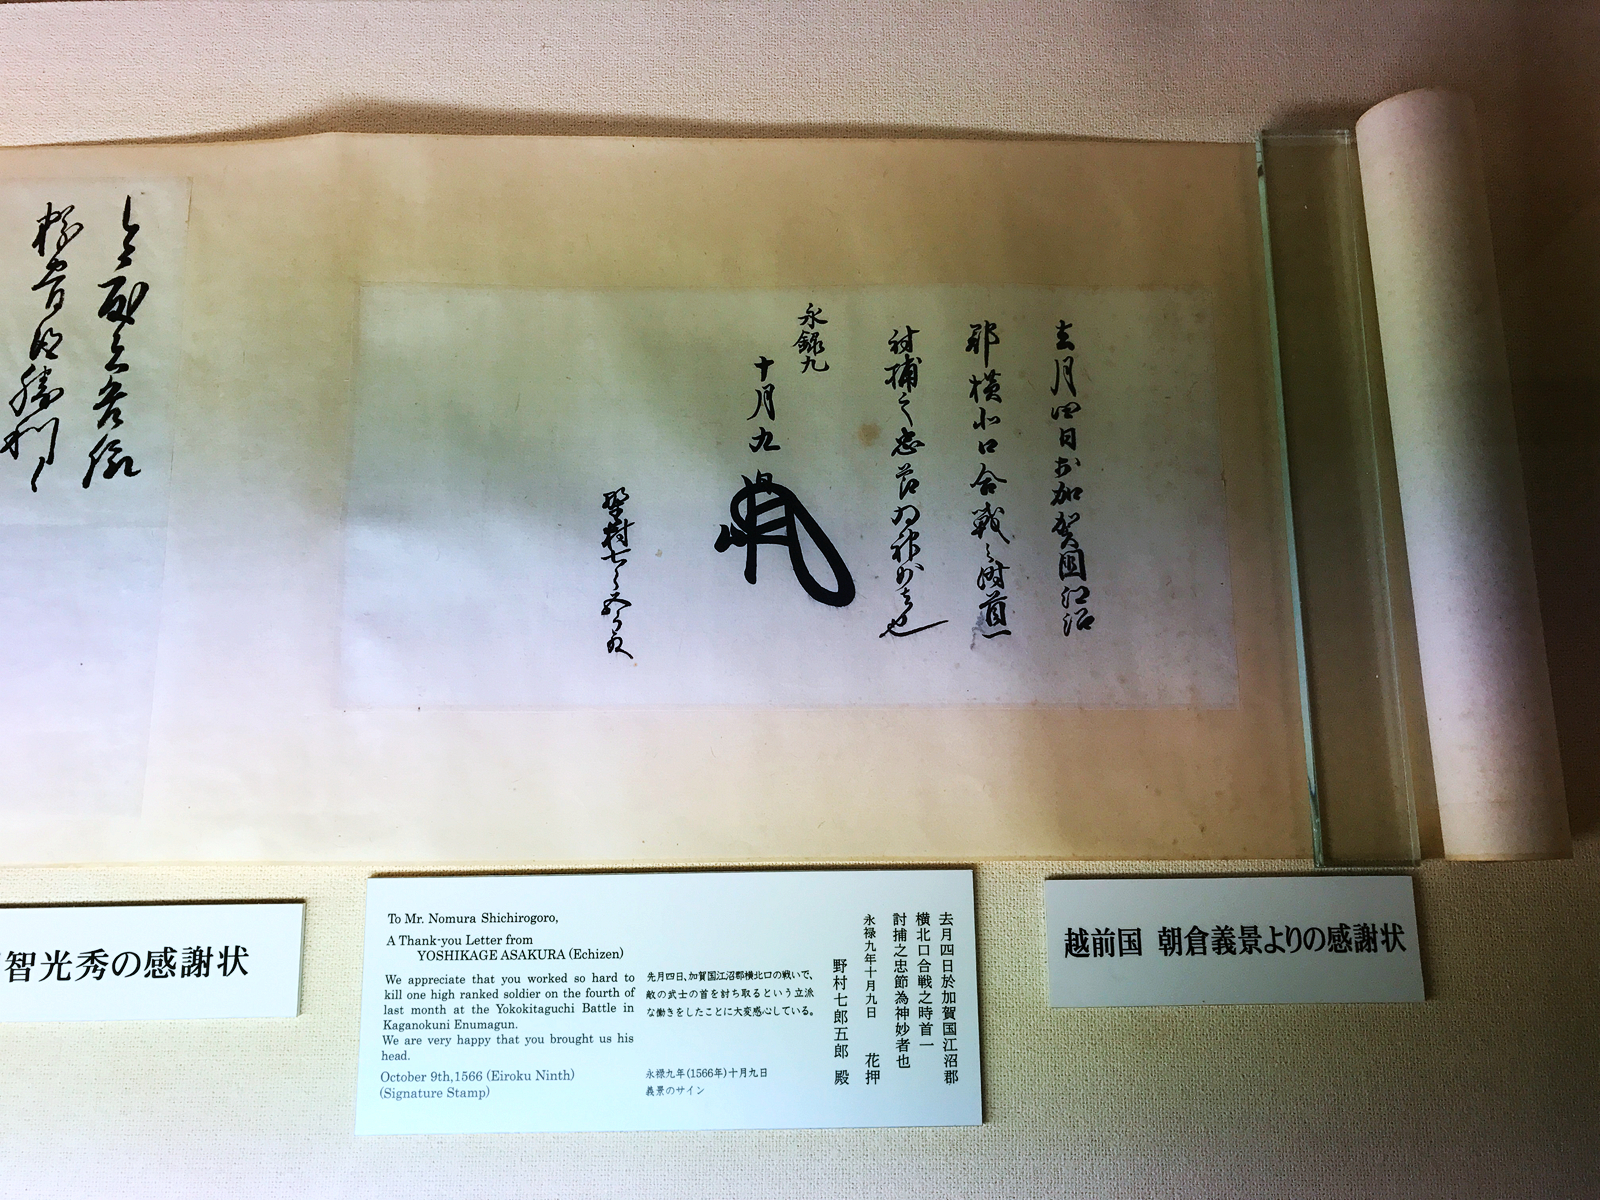 去月四日於加賀国江沼
郡横北口合戦之時首一
討捕之忠節為神妙者也
永禄九
十月九日
野村七郎五郎殿
越前国 朝倉義景よりの感謝状
去月四日於加賀国江沼郡
横北口合戦之時首一
討捕之忠節為神妙者也
永禄九年十月九日 花押
野村七郎五郎 殿
先月四日、加賀国江沼郡横北口の戦いで、
敵の武士の首を討ち取るという立派
な働きをしたことに大変感心している。
永禄九年(1566年)十月九日
義景のサイン
To Mr. Nomura Shichirogoro,
A Thank-you Letter from
YOSHIKAGE ASAKURA (Echizen)
We appreciate that you worked so hard to
kill one high ranked soldier on the fourth of
last month at the Yokokitaguchi Battle in
Kaganokuni Enumagun.
We are very happy that you brought us his
head.
October 9th,1566 (Eiroku Ninth)
(Signature Stamp)
智光秀の感謝状